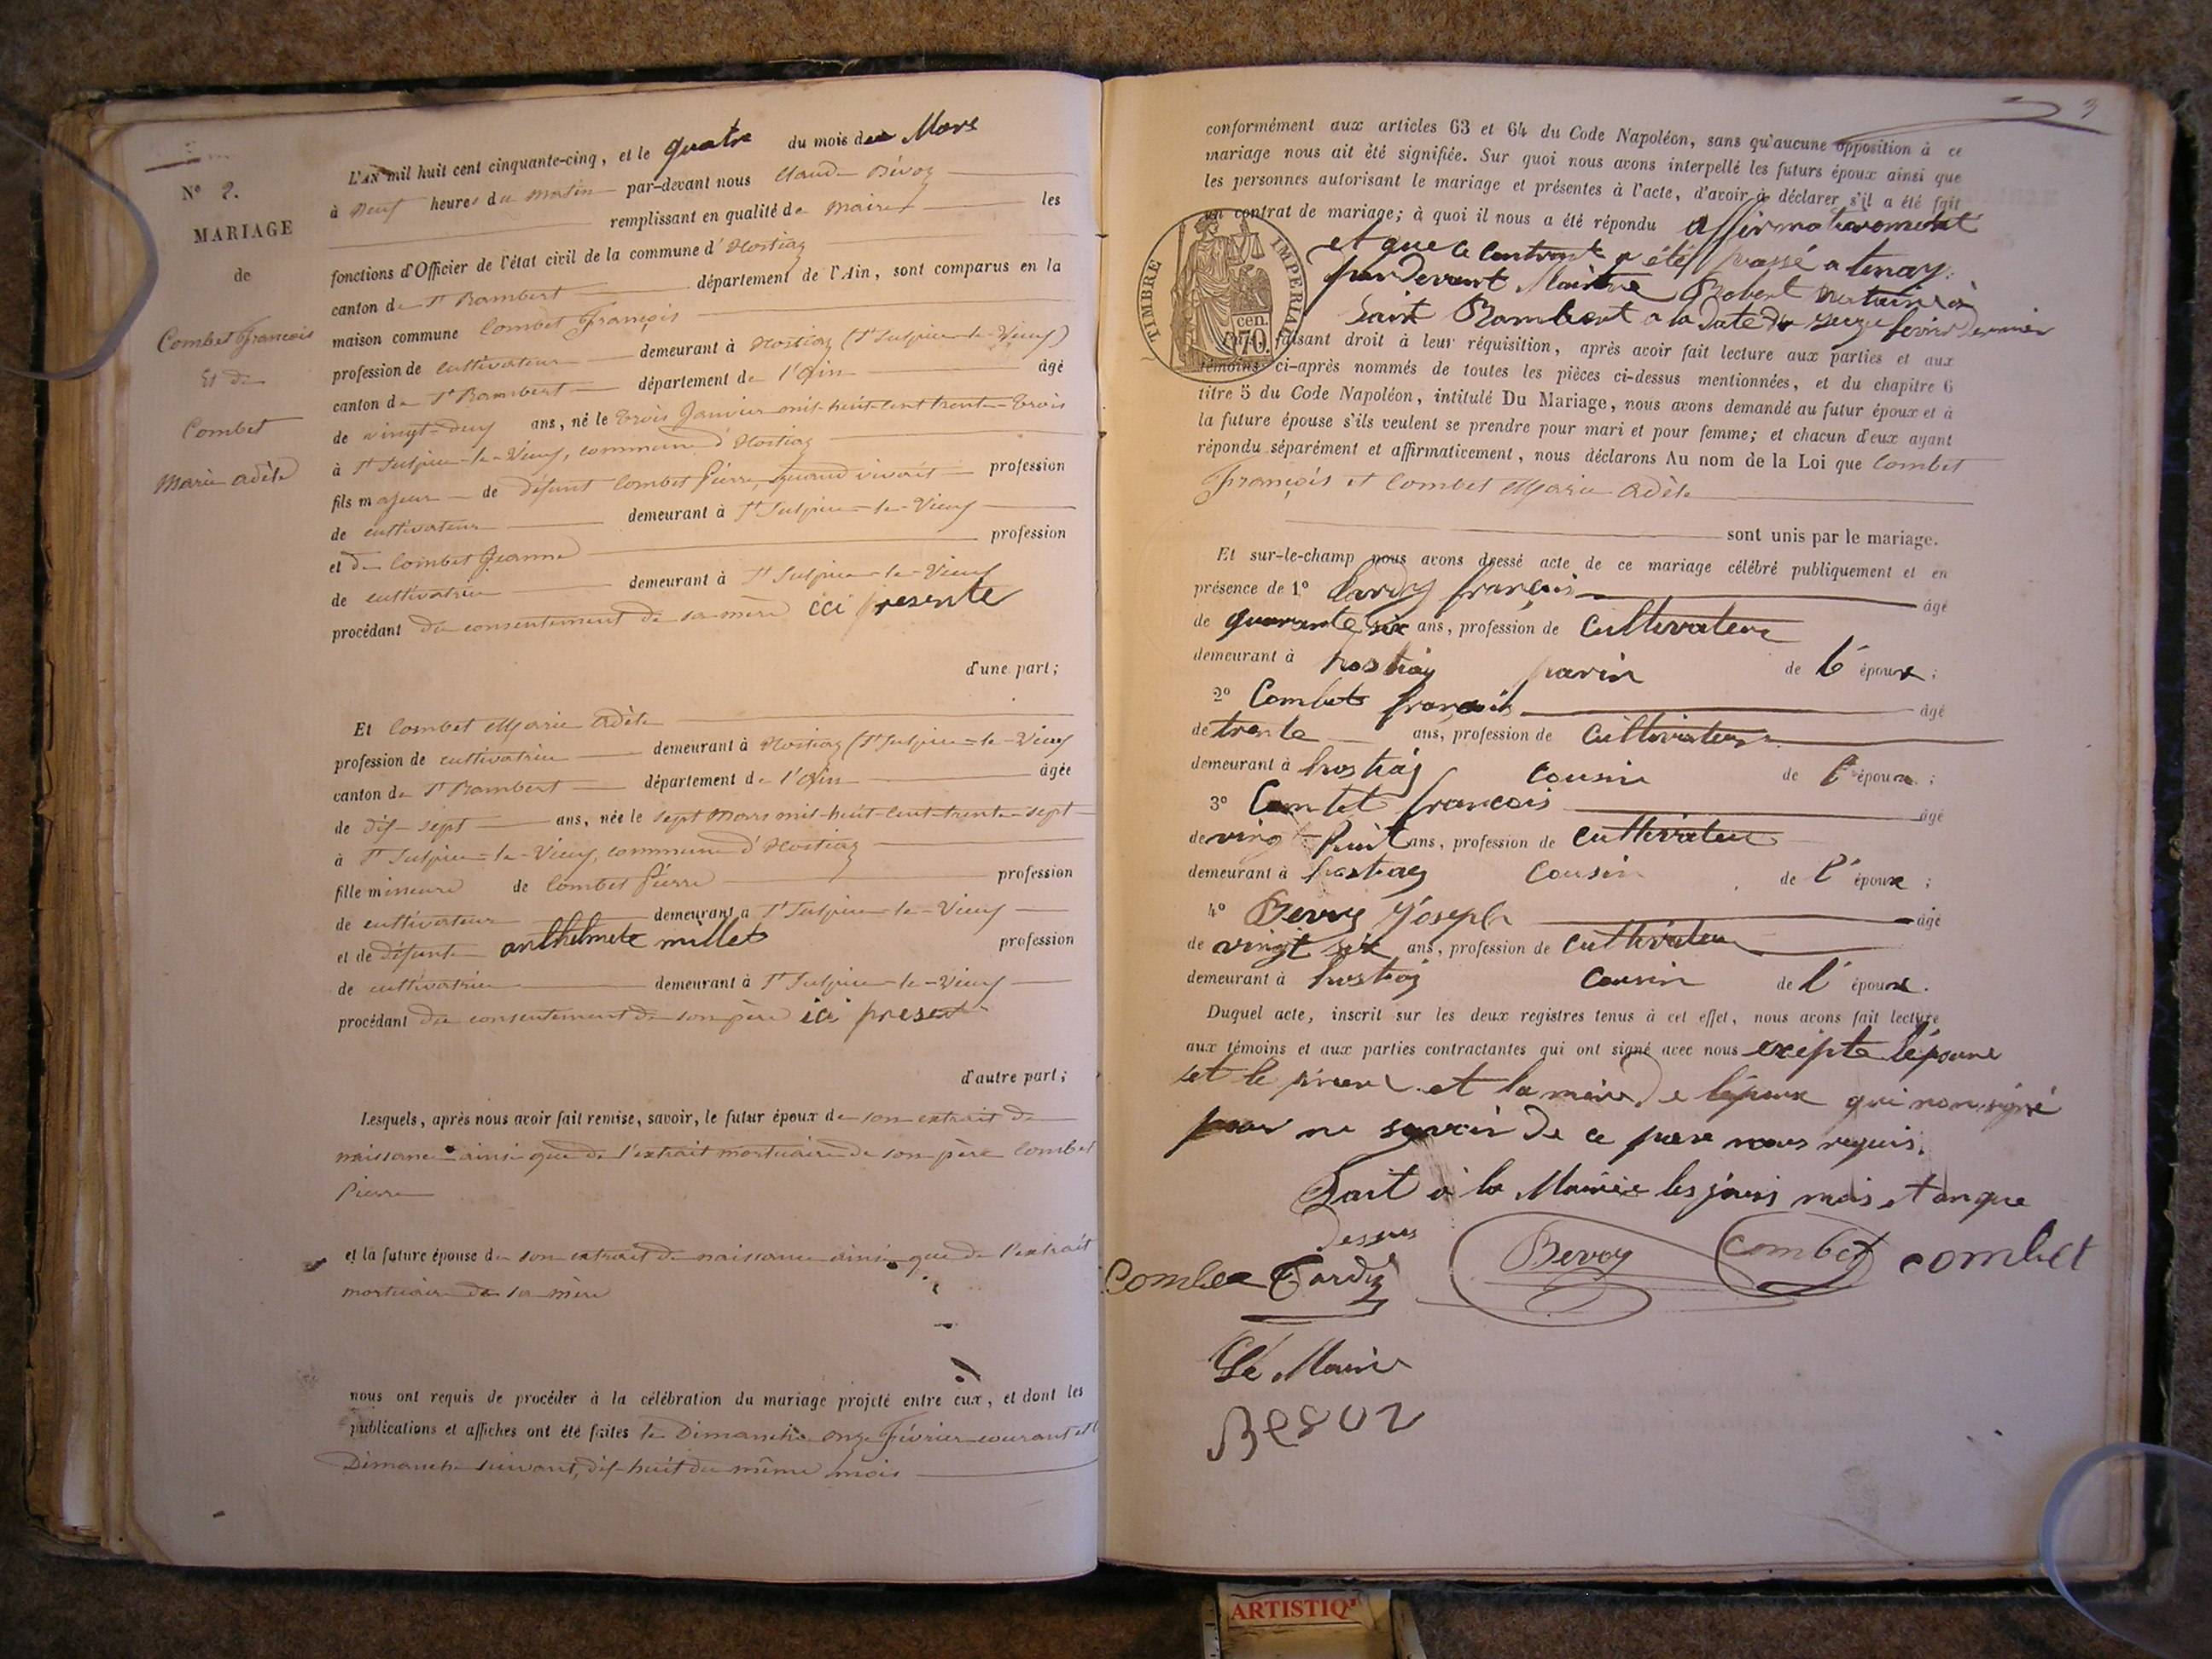 N° 2.
MARIAGE
de
Combet François
Et de
Combet
Marie Adèle
L'AN mil huit cent cinquante-cinq, et le quatre du mois de Mars
à Neuf heures du Matin par-devant nous Claude Bévoz
remplissant en qualité de Maire les
fonctions d'Officier de l'état civil de la commune d'Hostiaz
canton de St Rambert département de l'Ain, sont comparus en la
maison commune Combet François
profession de cultivateur demeurant à Hostiaz (St Sulpice-le-Vieux)
canton de St Rambert département de l'Ain âgé
de vingt-deux ans, né le trois Janvier mil-huit-cent trente-trois
à St Sulpice-le-Vieux, commune d'Hostiaz
fils majeur de défunt Combet Pierre, quand vivait profession
de cultivateur demeurant à St Sulpice-le-Vieux
et de Combet Jeanne profession
de cultivatrice demeurant à St Sulpice-le-Vieux
procédant du consentement de sa mère ici presente
d'une part;
Et Combet Marie Adèle
profession de cultivatrice demeurant à Hostiaz (St Sulpice-le-Vieux
canton de St Rambert département de l'Ain âgée
de dix-sept ans, née le sept Mars mil-huit-cent-trente-sept
à St Sulpice-le-Vieux, commune d'Hostiaz
fille mineure de Combet Pierre profession
de cultivateur demeurant à St Sulpice-le-Vieux
et de défunte anthelmete millet profession
de cultivatrice demeurant à St Sulpice-le-Vieux
procédant du consentement de son père ici present
d'autre part;
Lesquels, après nous avoir fait remise, savoir, le futur époux de son extrait de
naissance ainsi que de l'extrait mortuaire de son père Combet
Pierre
et la future épouse de son extrait de naissance ainsi que de l'extrait
mortuaire de sa mère
nous ont requis de procéder à la célébration du mariage projeté entre eux, et dont les
publications et affiches ont été faites le Dimanche onze Février courant et le
Dimanche suivant, dix-huit du même mois
3
conformément aux articles 63 et 64 du Code Napoléon, sans qu'aucune opposition à ce
mariage nous ait été signifiée. Sur quoi nous avons interpellé les futurs époux ainsi que
les personnes autorisant le mariage et présentes à l'acte, d'avoir à déclarer s'il a été fait
un contrat de mariage; à quoi il nous a été répondu affirmativement
et que le contrat a été passé a tenay
par devant Maitre Robert notaire à
Saint Rambert a la date du seize fevrier dernier
TIMBRE IMPERIAL
70 cen.
faisant droit à leur réquisition, après avoir fait lecture aux parties et aux
témoins ci-après nommés de toutes les pièces ci-dessus mentionnées, et du chapitre 6
titre 5 du Code Napoléon, intitulé Du Mariage, nous avons demandé au futur époux et à
la future épouse s'ils veulent se prendre pour mari et pour femme; et chacun d'eux ayant
répondu séparément et affirmativement, nous déclarons Au nom de la Loi que Combet
François et Combet Marie Adèle
sont unis par le mariage.
Et sur-le-champ nous avons dressé acte de ce mariage célébré publiquement et en
présence de 1° Tardy françois âgé
de quarante six ans, profession de Cultivateur
demeurant à hostiaz parin de l'époux;
2° Combet françois âgé
de trente ans, profession de Cultivateur
demeurant à hostiaz cousin de l'épouse;
3° Combet francois âgé
de vingt-huit ans, profession de cultivateur
demeurant à hostiaz Cousin de l'époux;
4° Bevoz Joseph âgé
de vingt six ans, profession de cultivateur
demeurant à hostiaz Cousin de l'époux.
Duquel acte, inscrit sur les deux registres tenus à cet effet, nous avons fait lecture
aux témoins et aux parties contractantes qui ont signé avec nous excepte l'épouse
et le et la mère de l'époux qui non signé
pour ne savoir de ce requis.
Fait à la Mairie les jours mois et an que
dessus
Combet Tardy Bevoz Combet combet
Le Maire
Bevoz
ARTISTIQ